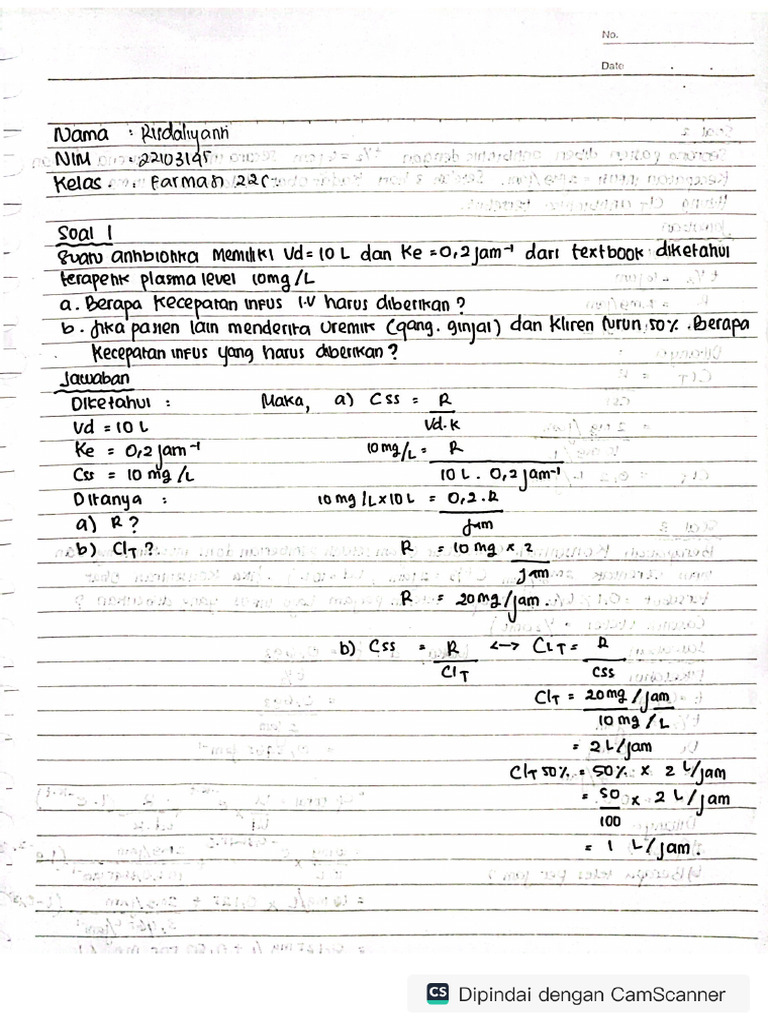 No.
Date
Nama : Risdaliyanti
NIM : 22103195
Kelas : Farmasi 22C
Soal 1
Suatu antibiotika memiliki Vd = 10 L dan Ke = 0,2 jam⁻¹ dari textbook diketahui
terapetik plasma level 10mg/L
a. Berapa kecepatan infus I.V harus diberikan ?
b. Jika pasien lain menderita uremik (gang. ginjal) dan kliren turun 50%. Berapa
kecepatan infus yang harus diberikan ?
Jawaban
Diketahui : Maka, a) Css = R
Vd = 10 L Vd.K
Ke = 0,2 jam⁻¹ 10 mg/L = R
Css = 10 mg/L 10 L . 0,2 jam⁻¹
Ditanya : 10 mg/L x 10 L = 0,2.R
a) R ? jam
b) ClT ? R = 10 mg x 2
jam
R = 20 mg/jam.
b) Css = R <-> CLT = R
ClT Css
ClT = 20 mg/jam
10 mg/L
= 2 L/jam
ClT 50% = 50% x 2 L/jam
= 50 x 2 L/jam
100
= 1 L/jam.
CS Dipindai dengan CamScanner